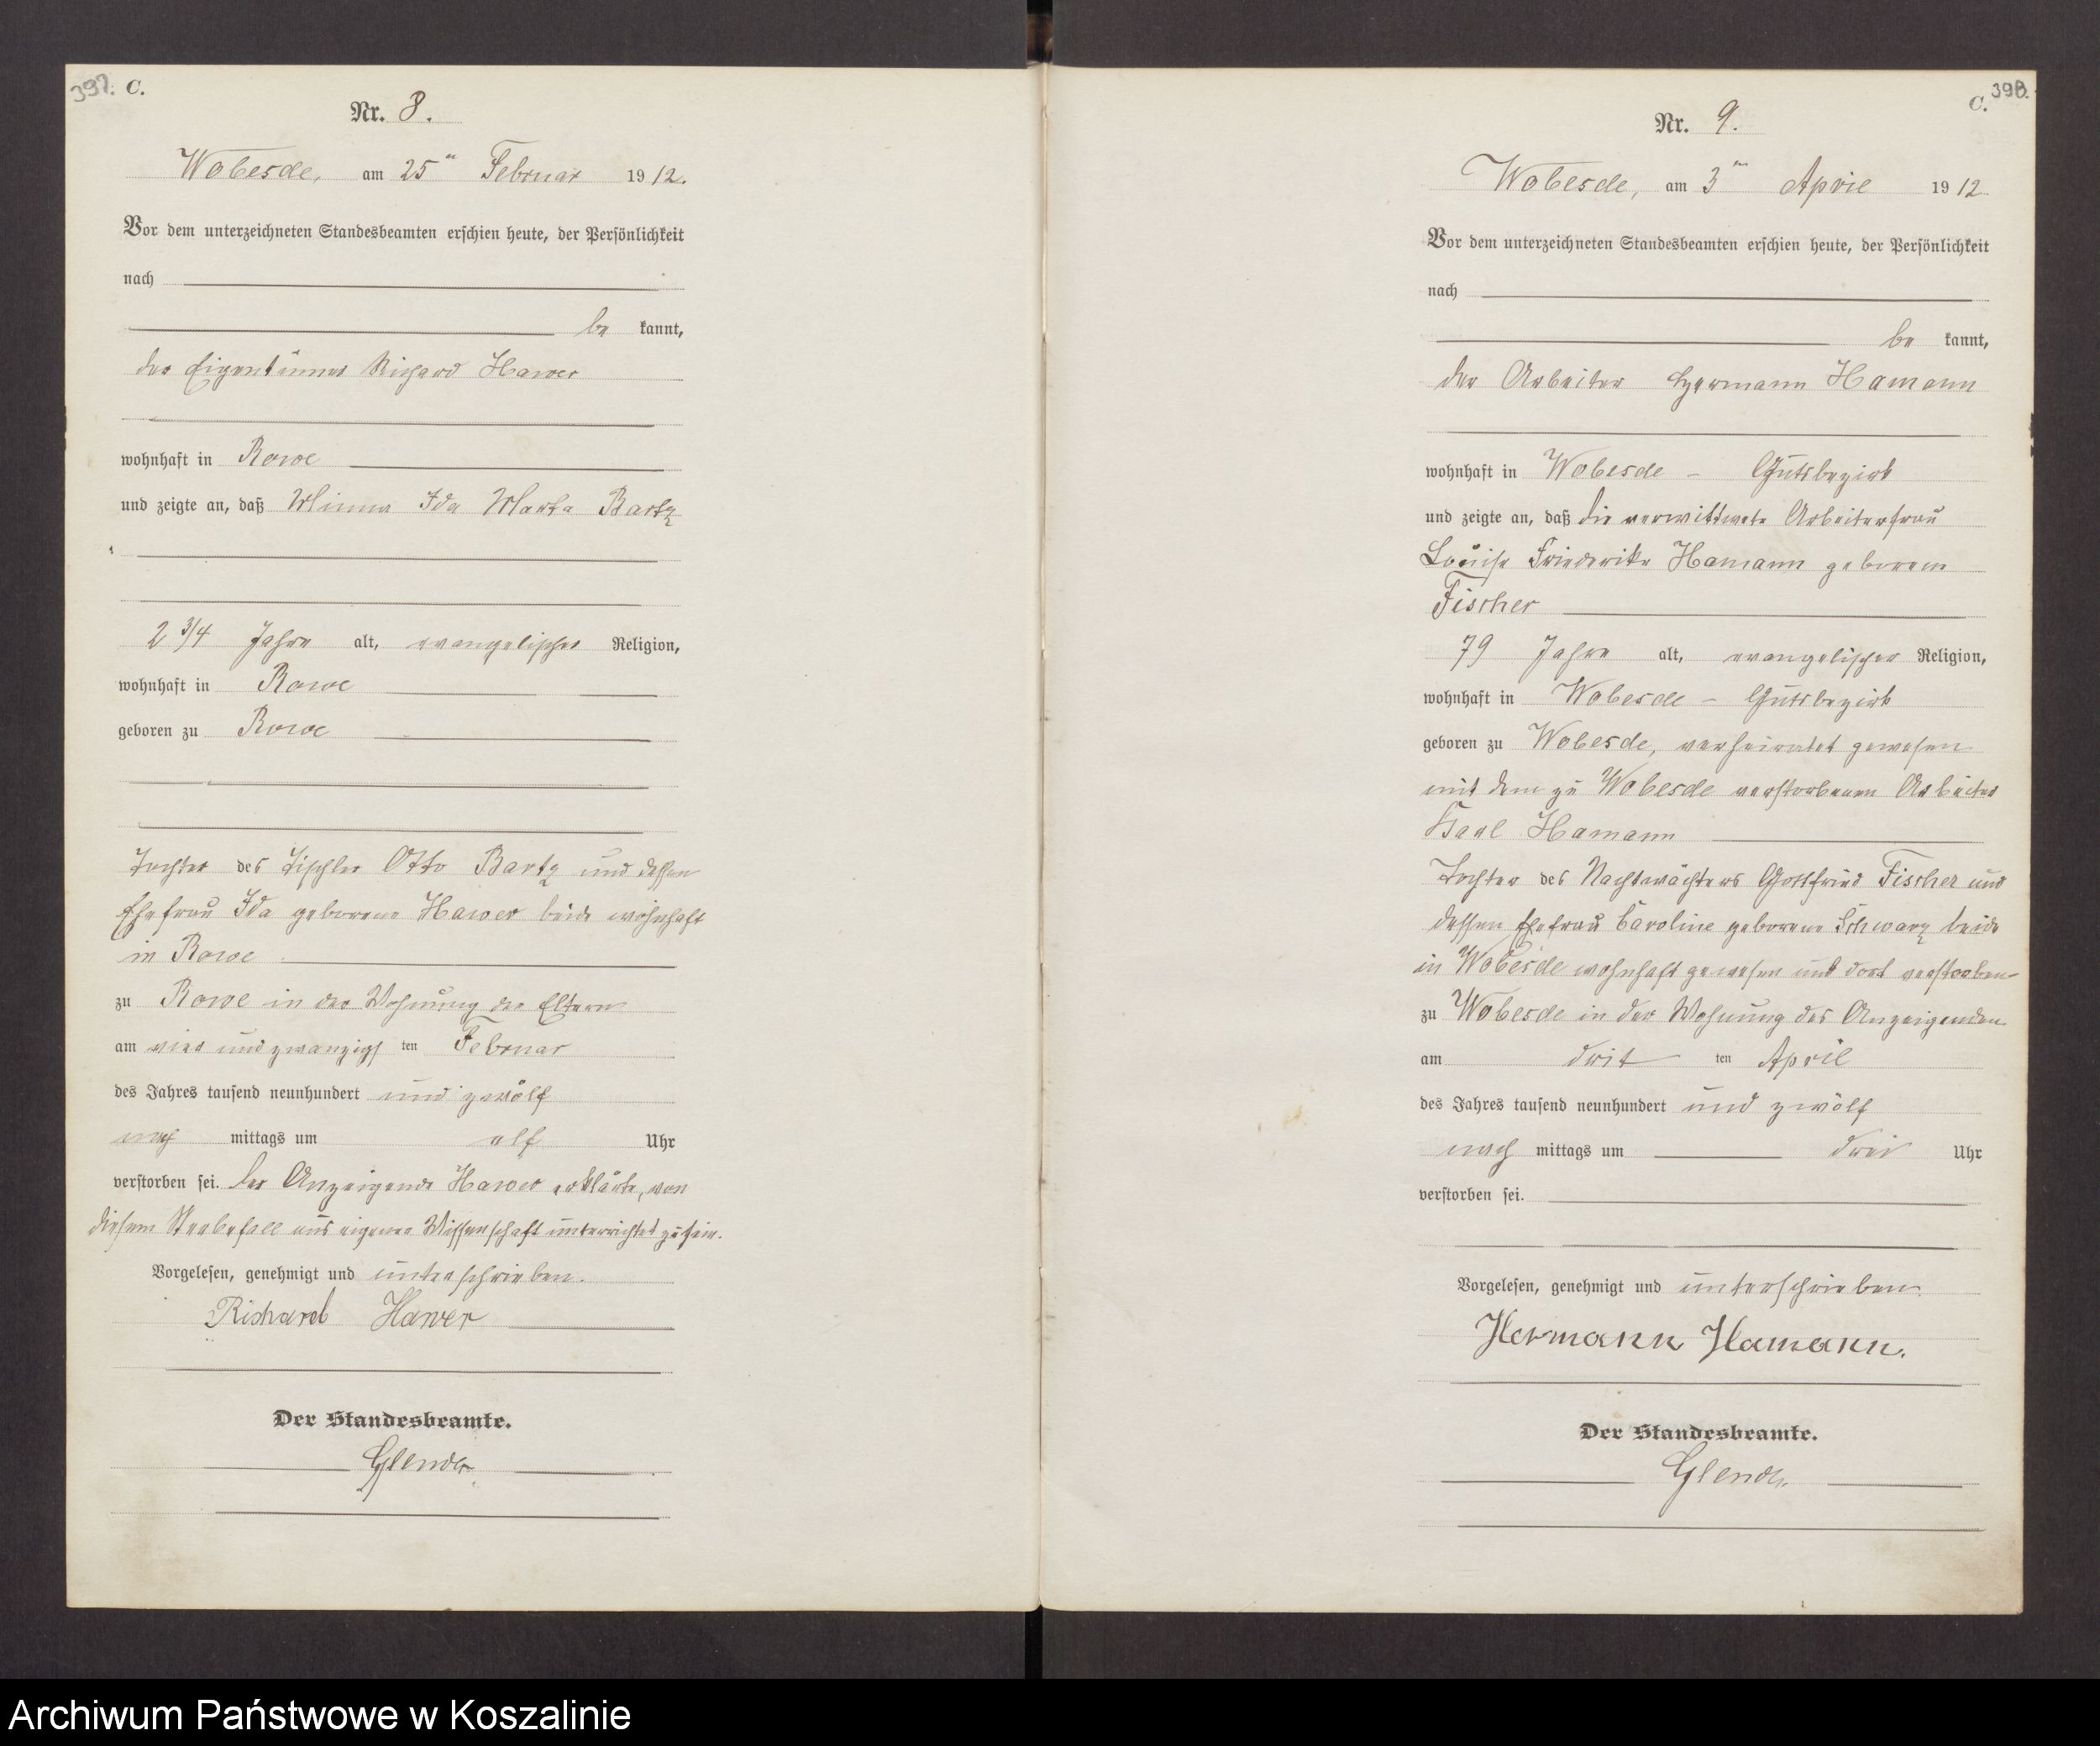 397. C.
Nr. 8.
Wobesde, am 25ten Februar 1912.
Vor dem unterzeichneten Standesbeamten erschien heute, der Persönlichkeit
nach
be kannt,
der Eigentümer Richard Hawer
wohnhaft in Rowe
und zeigte an, daß Minna Ida Marta Bartz
2 3/4 Jahre alt, evangelischer Religion,
wohnhaft in Rowe
geboren zu Rowe
Tochter des Tischler Otto Bartz und dessen
Ehefrau Ida geborene Hawer beide wohnhaft
in Rowe
zu Rowe in der Wohnung der Eltern
am vier und zwanzigs ten Februar
des Jahres tausend neunhundert und zwölf
nach mittags um elf Uhr
verstorben sei. Der Anzeigende Hawer erklärte, von
diesem Sterbefall aus eigener Wissenschaft unterrichtet zu sein.
Vorgelesen, genehmigt und unterschrieben.
Richard Hawer
Der Standesbeamte.
398.
C.
Nr. 9.
Wobesde, am 3ten April 1912
Vor dem unterzeichneten Standesbeamten erschien heute, der Persönlichkeit
nach
be kannt,
der Arbeiter Hermann Hamann
wohnhaft in Wobesde - Gutsbezirk
und zeigte an, daß die verwittwete Arbeiterfrau
Louise Friederike Hamann geborene
Fischer
79 Jahre alt, evangelischer Religion,
wohnhaft in Wobesde - Gutsbezirk
geboren zu Wobesde, verheiratet gewesen
mit dem zu Wobesde verstorbenen Arbeiter
Karl Hamann
Tochter des Nachtwächters Gottfried Fischer und
dessen Ehefrau Caroline geborene Schwarz beide
in Wobesde wohnhaft gewesen und dort verstorben
zu Wobesde in der Wohnung des Anzeigenden
am drit ten April
des Jahres tausend neunhundert und zwölf
nach mittags um drei Uhr
verstorben sei.
Vorgelesen, genehmigt und unterschrieben.
Hermann Hamann.
Der Standesbeamte.
Archiwum Państwowe w Koszalinie